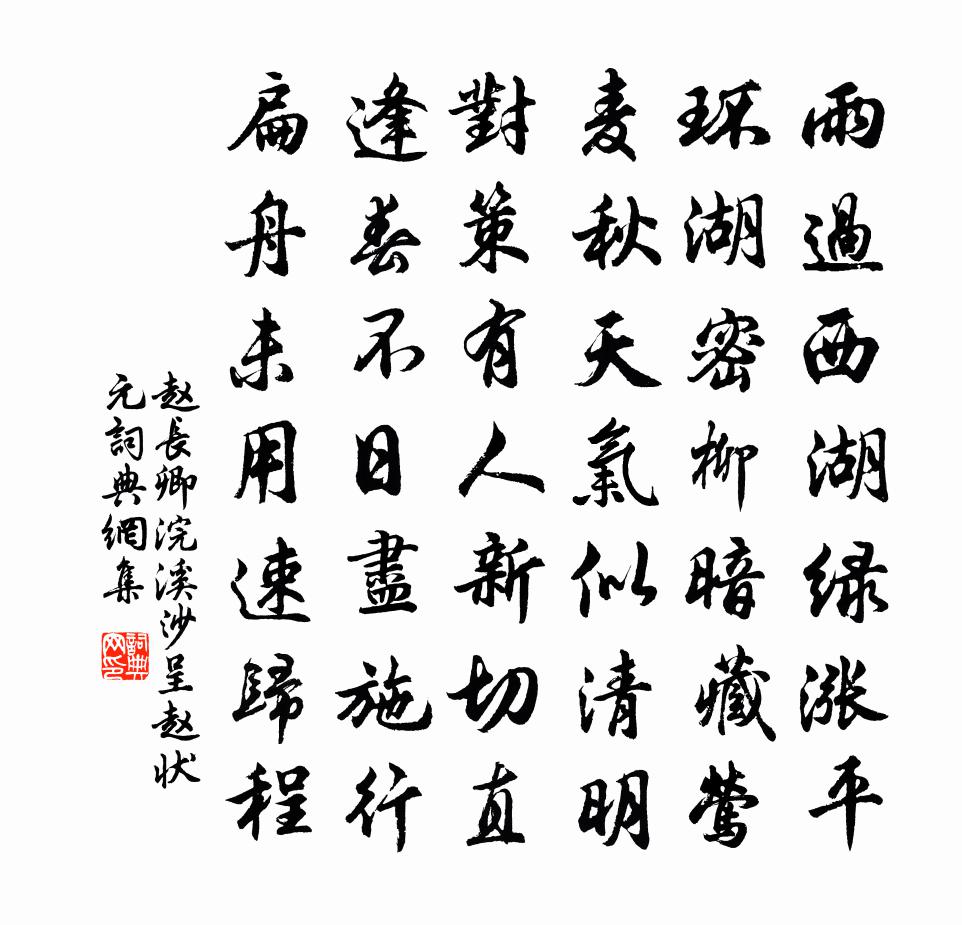 雨過西湖绿涨平
环湖密柳暗藏鶯
麦秋天氣似清明
對策有人新切直
逢春不日盡施行
扁舟未用速歸程
赵長卿浣溪沙呈赵状
元詞典網集
詞典
网印